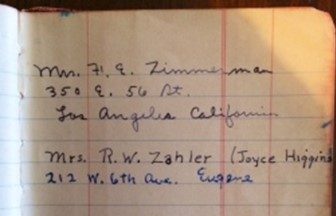 Mrs. F. E. Zimmerman
350 E. 56 St.
Los Angeles California
Mrs. R.W. Zahler (Joyce Higgins
212 W. 6th Ave. Eugene